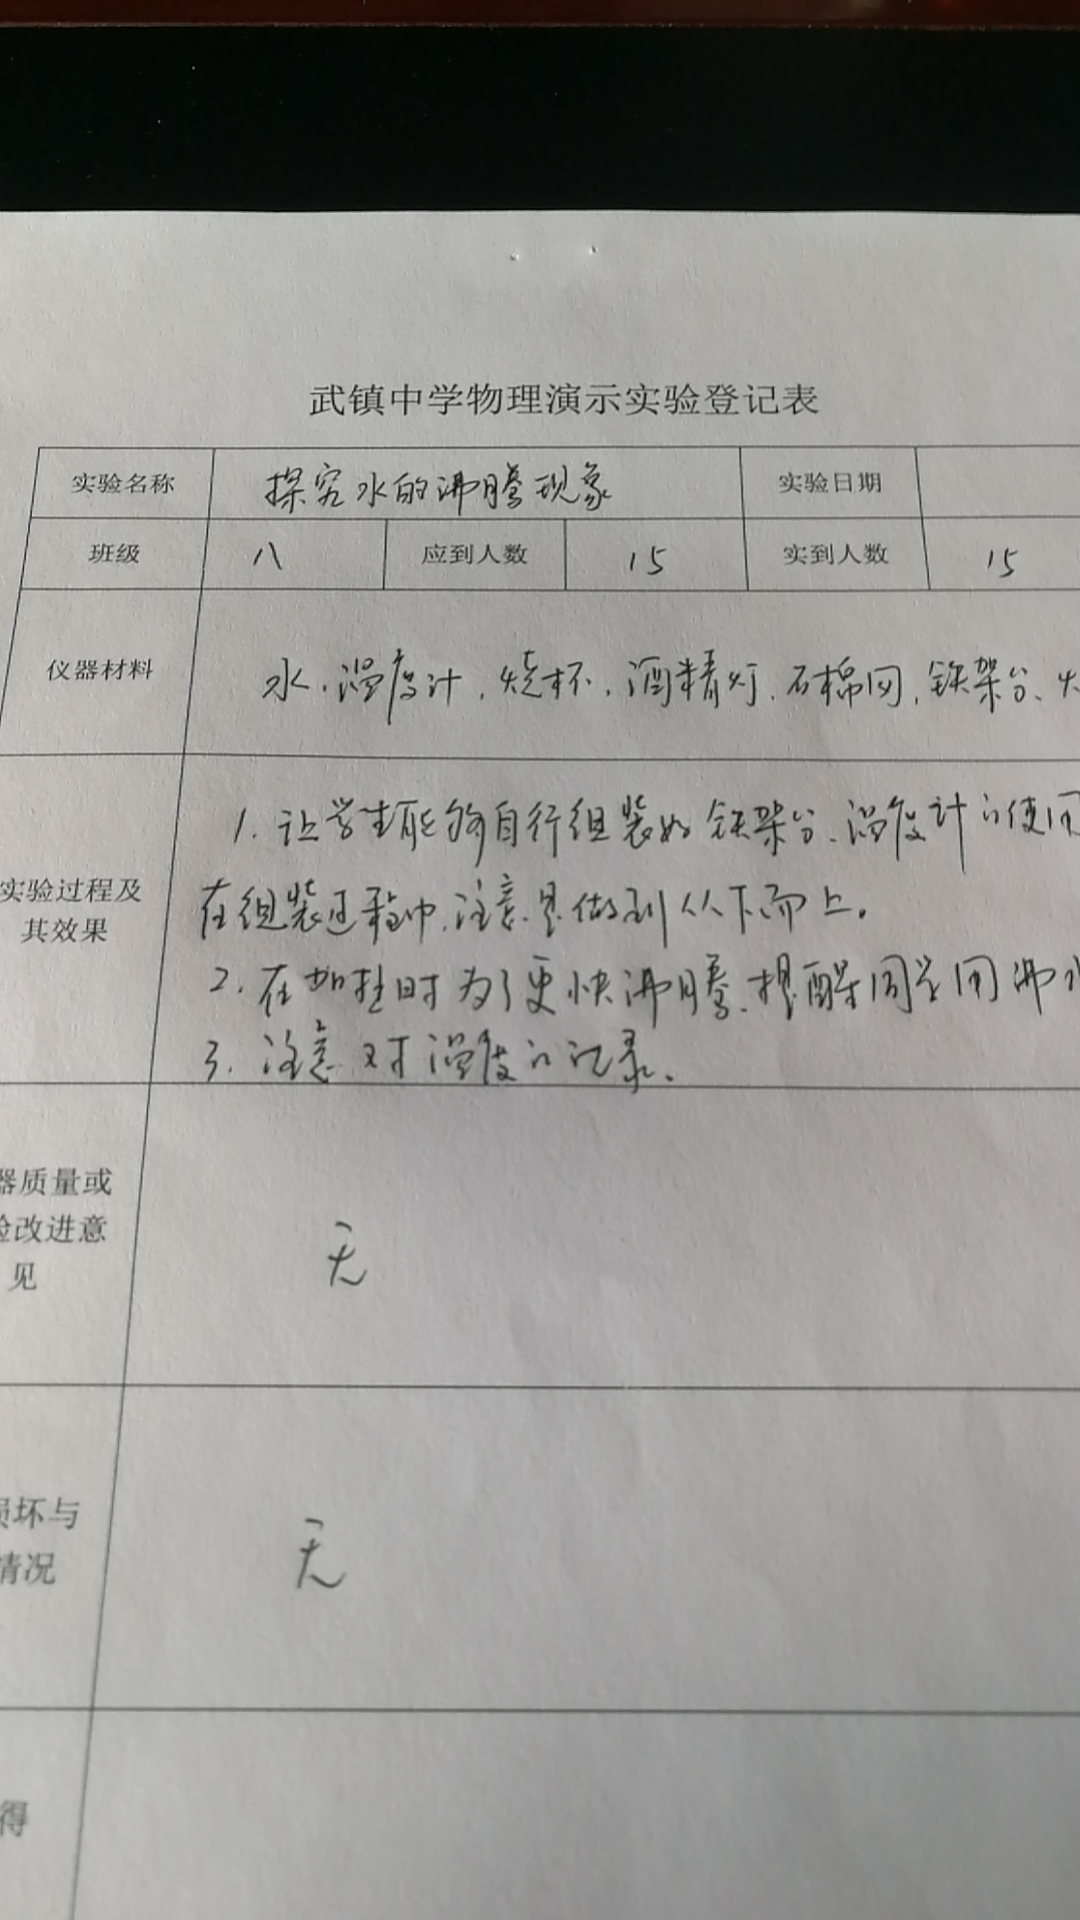 武镇中学物理演示实验登记表
实验名称 探究水的沸腾现象 实验日期
班级 八 应到人数 15 实到人数 15
仪器材料 水、温度计、烧杯、酒精灯、石棉网、铁架台、火
1. 让学生能够自行组装好铁架台、温度计的使用
实验过程及 在组装过程中,注意是做到从下而上。
其效果
2. 在加热时为了更快沸腾、提醒同学用沸水
3. 注意对温度的记录。
器质量或
验改进意 无
见
损坏与 无
情况
得